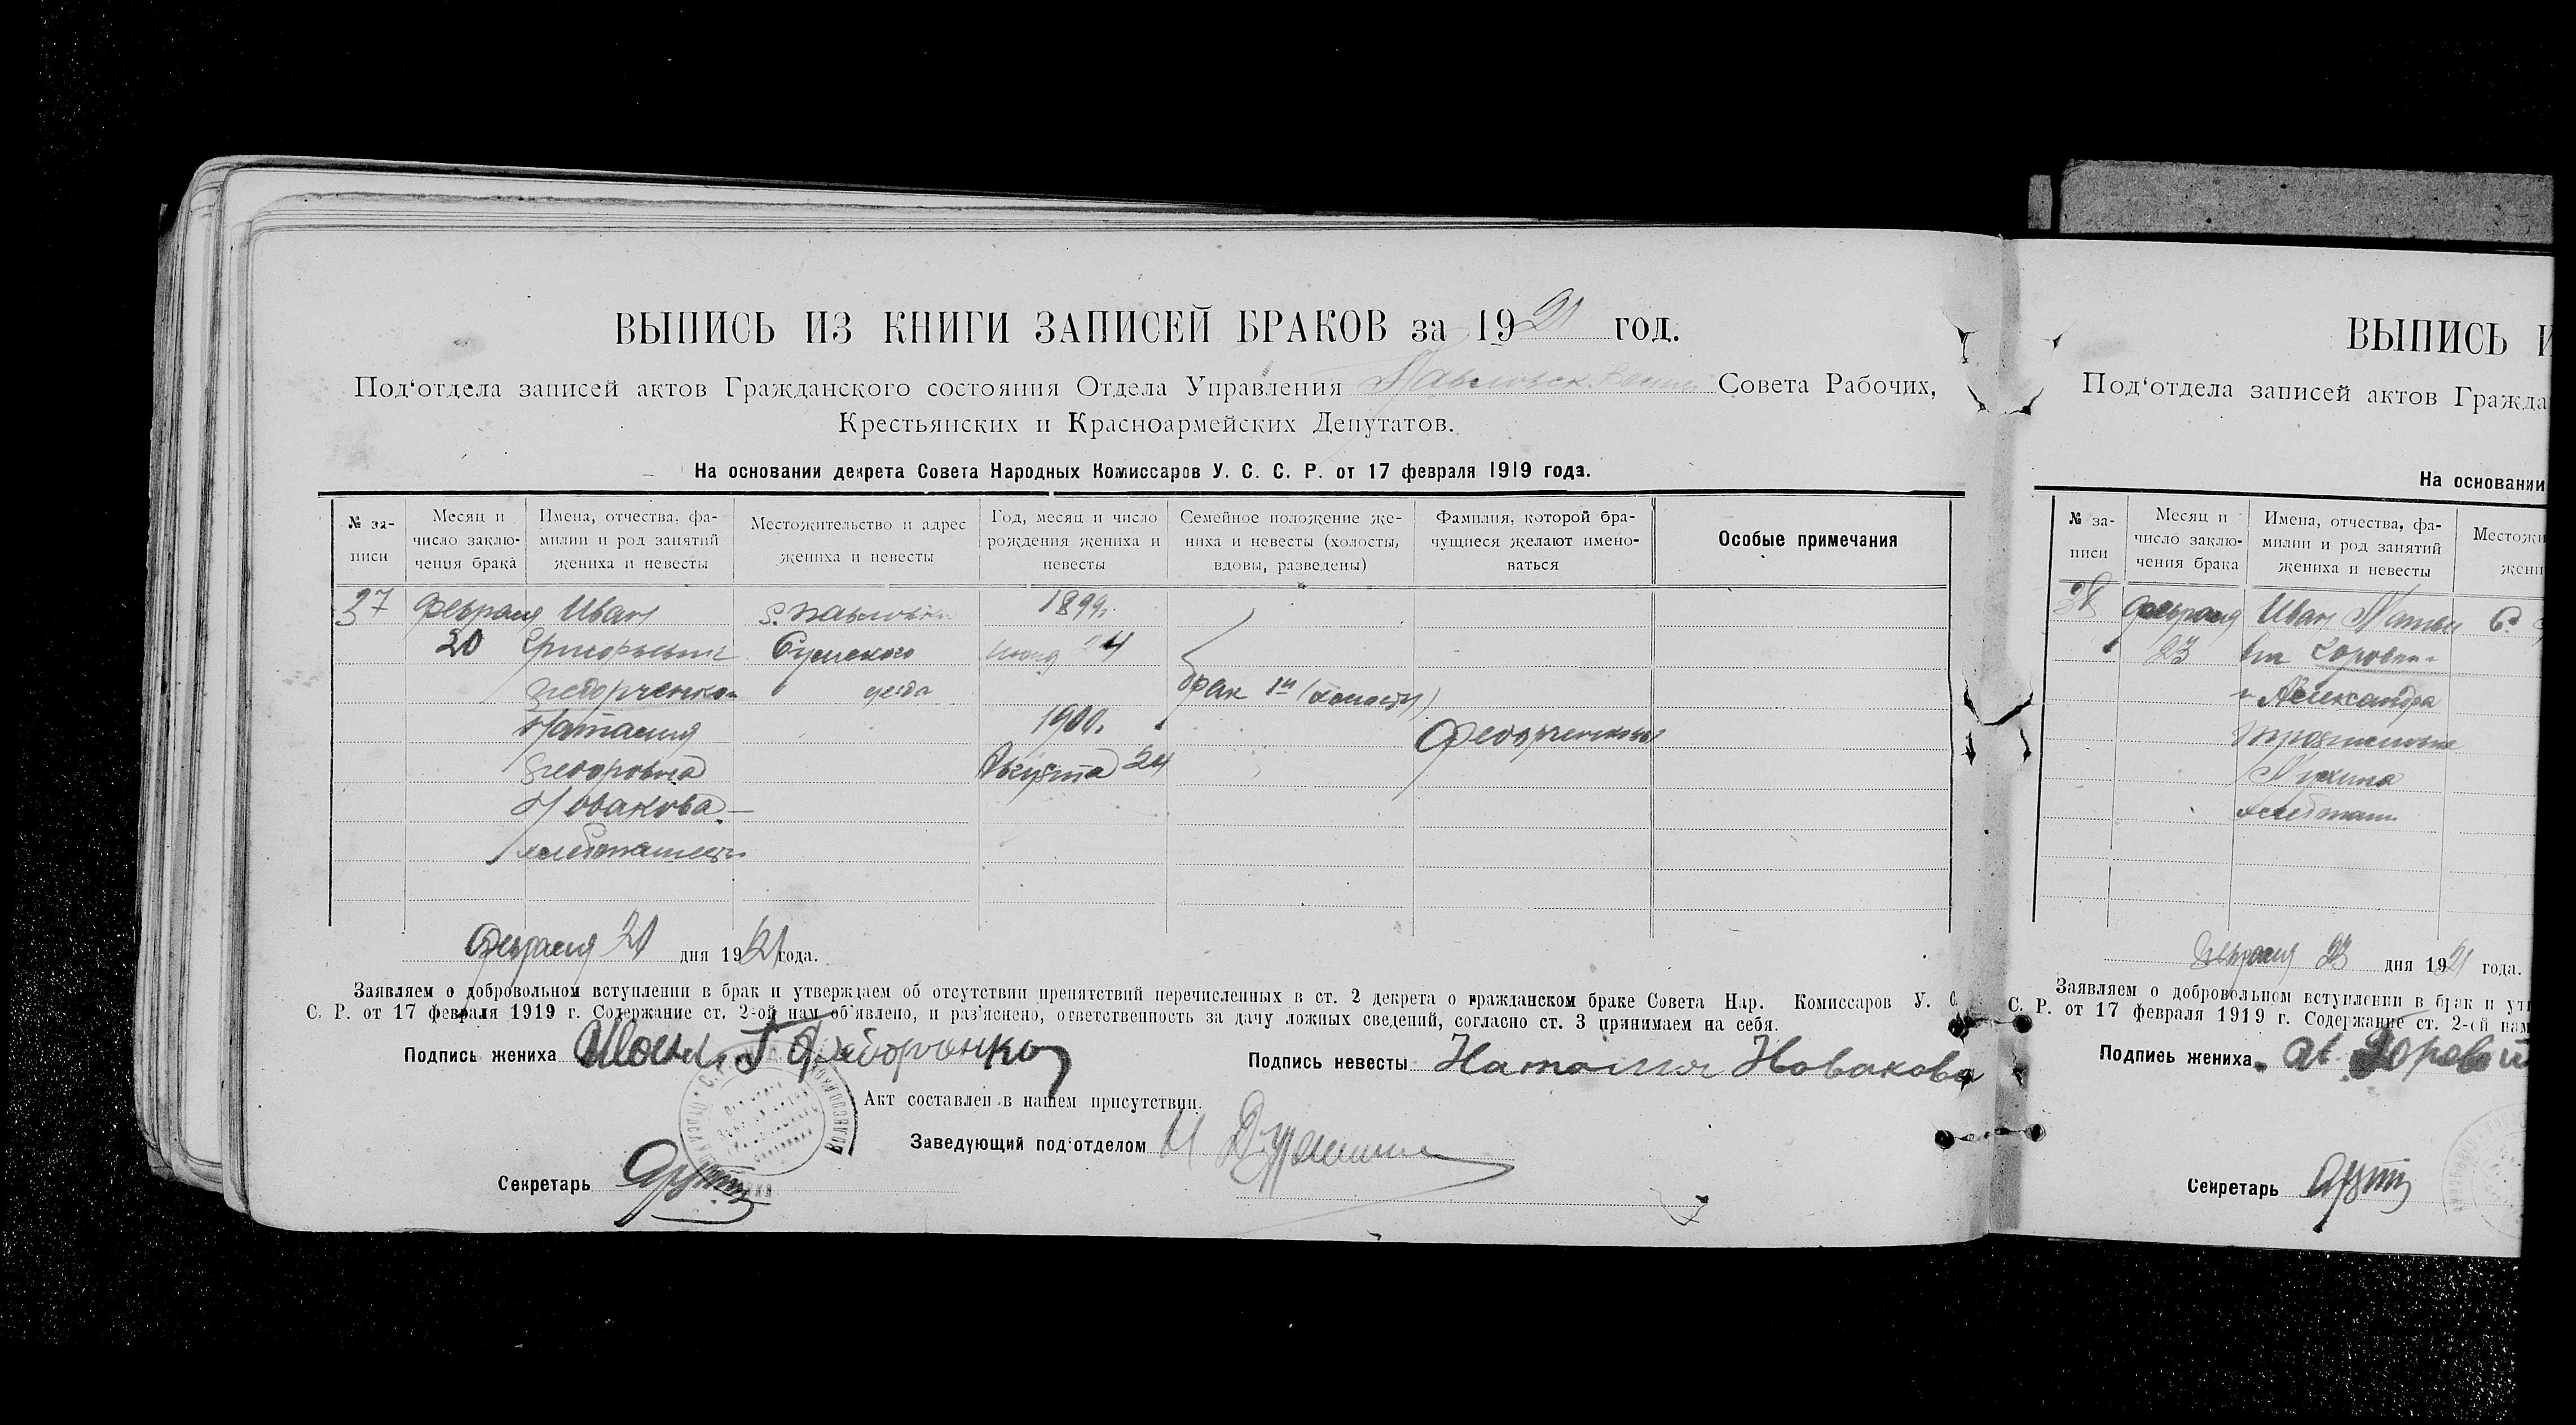 ВЫПИСЬ ИЗ КНИГИ ЗАПИСЕЙ БРАКОВ за 1921 год.
Под‘отдела записей актов Гражданского состояния Отдела Управления Павловск. Совета Рабочих,
Крестьянских и Красноармейских Депутатов.
На основании декрета Совета Народных Комиссаров У. С. С. Р. от 17 февраля 1919 года.
№ за-
писи
Месяц и
число заклю-
чения брака
Имена, отчества, фа-
милии и род занятий
жениха и невесты
Местожительство и адрес
жениха и невесты
Год, месяц и число
рождения жениха и
невесты
Семейное положение же-
ниха и невесты (холосты,
вдовы, разведены)
Фамилия, которой бра-
чущиеся желают имено-
ваться
Особые примечания
37
Февраля
20
Иван
Григорьевич
Федорченко
Наталия
Федоровна
Новакова
хлебопашест
с. Павловки
Сумского
уезда
1899.
24
1900.
Августа 24
брак 1й (холосты)
Федорченковы
Февраля 20 дня 1921 года.
Заявляем о добровольном вступлении в брак и утверждаем об отсутствии препятствий перечисленных в ст. 2 декрета о гражданском браке Совета Нар. Комиссаров У. С.
С. Р. от 17 февраля 1919 г. Содержание ст. 2-ой нам об‘явлено, и раз‘яснено, ответственность за дачу ложных сведений, согласно ст. 3 принимаем на себя.
Подпись жениха Иван Г Федорченко
Подпись невесты Наталия Новакова
Акт составлен в нашем присутствии.
Заведующий под‘отделом
Секретарь
ВЫПИСЬ И
Под‘отдела записей актов Гражда
На основании
№ за-
писи
Месяц и
число заклю-
чения брака
Имена, отчества, фа-
милии и род занятий
жениха и невесты
Местожи
жени
38
Февраля
23
Иван Матве
Александра
Лукина
хлебопаш
С.
Февраля 23 дня 1921 года.
Заявляем о добровольном вступлении в брак и утв
С. Р. от 17 февраля 1919 г. Содержание ст. 2-ой нам
Подпись жениха
Секретарь